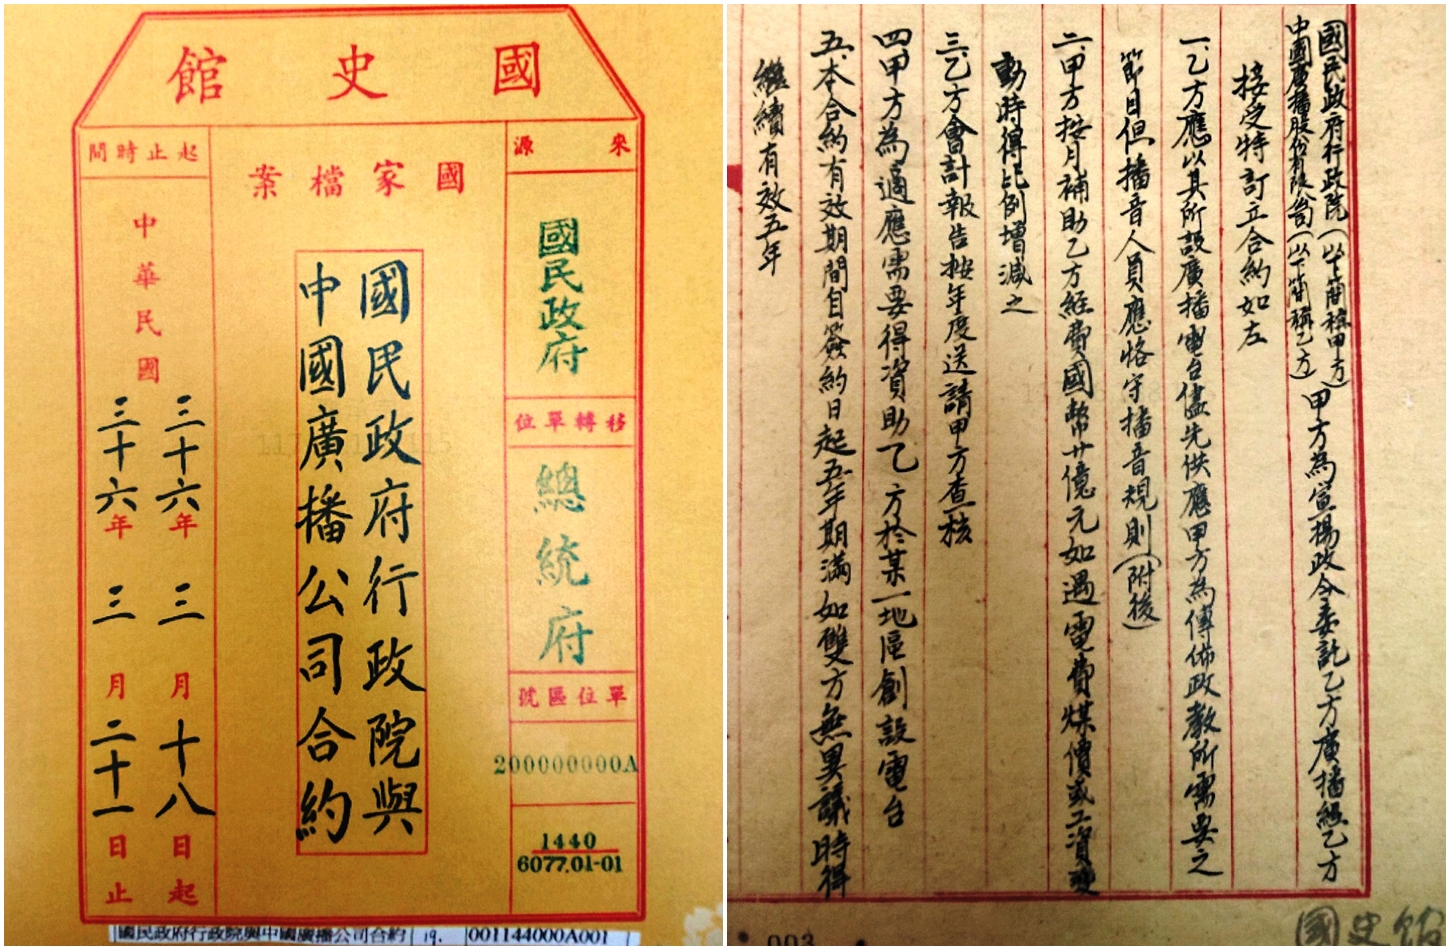 國史館
來源
國民政府
移轉單位
總統府
單位區號
200000000A
1440
6077.01-01
國家檔案
國民政府行政院與
中國廣播公司合約
起止時間
中華民國
三十六年三月十八日起
三十六年三月二十一日止
國民政府行政院與中國廣播公司合約
19.
001144000A001
國民政府行政院(以下簡稱甲方)
中國廣播股份有限公司(以下簡稱乙方)
甲方為宣揚政令委託乙方廣播經乙方
接受特訂立合約如左
一、乙方應以其所設廣播電台儘先供應甲方為傳佈政教所需要之
節目但播音人員應恪守播音規則(附後)
二、甲方按月補助乙方經費國幣廿億元如遇電費煤價或工資變
動時得比例增減之
三、乙方會計報告按年度送請甲方查核
四甲方為適應需要得資助乙方於某一地區創設電台
五、本合約有效期間自簽約日起五年期滿如雙方無異議時得
繼續有效五年
003
國史館